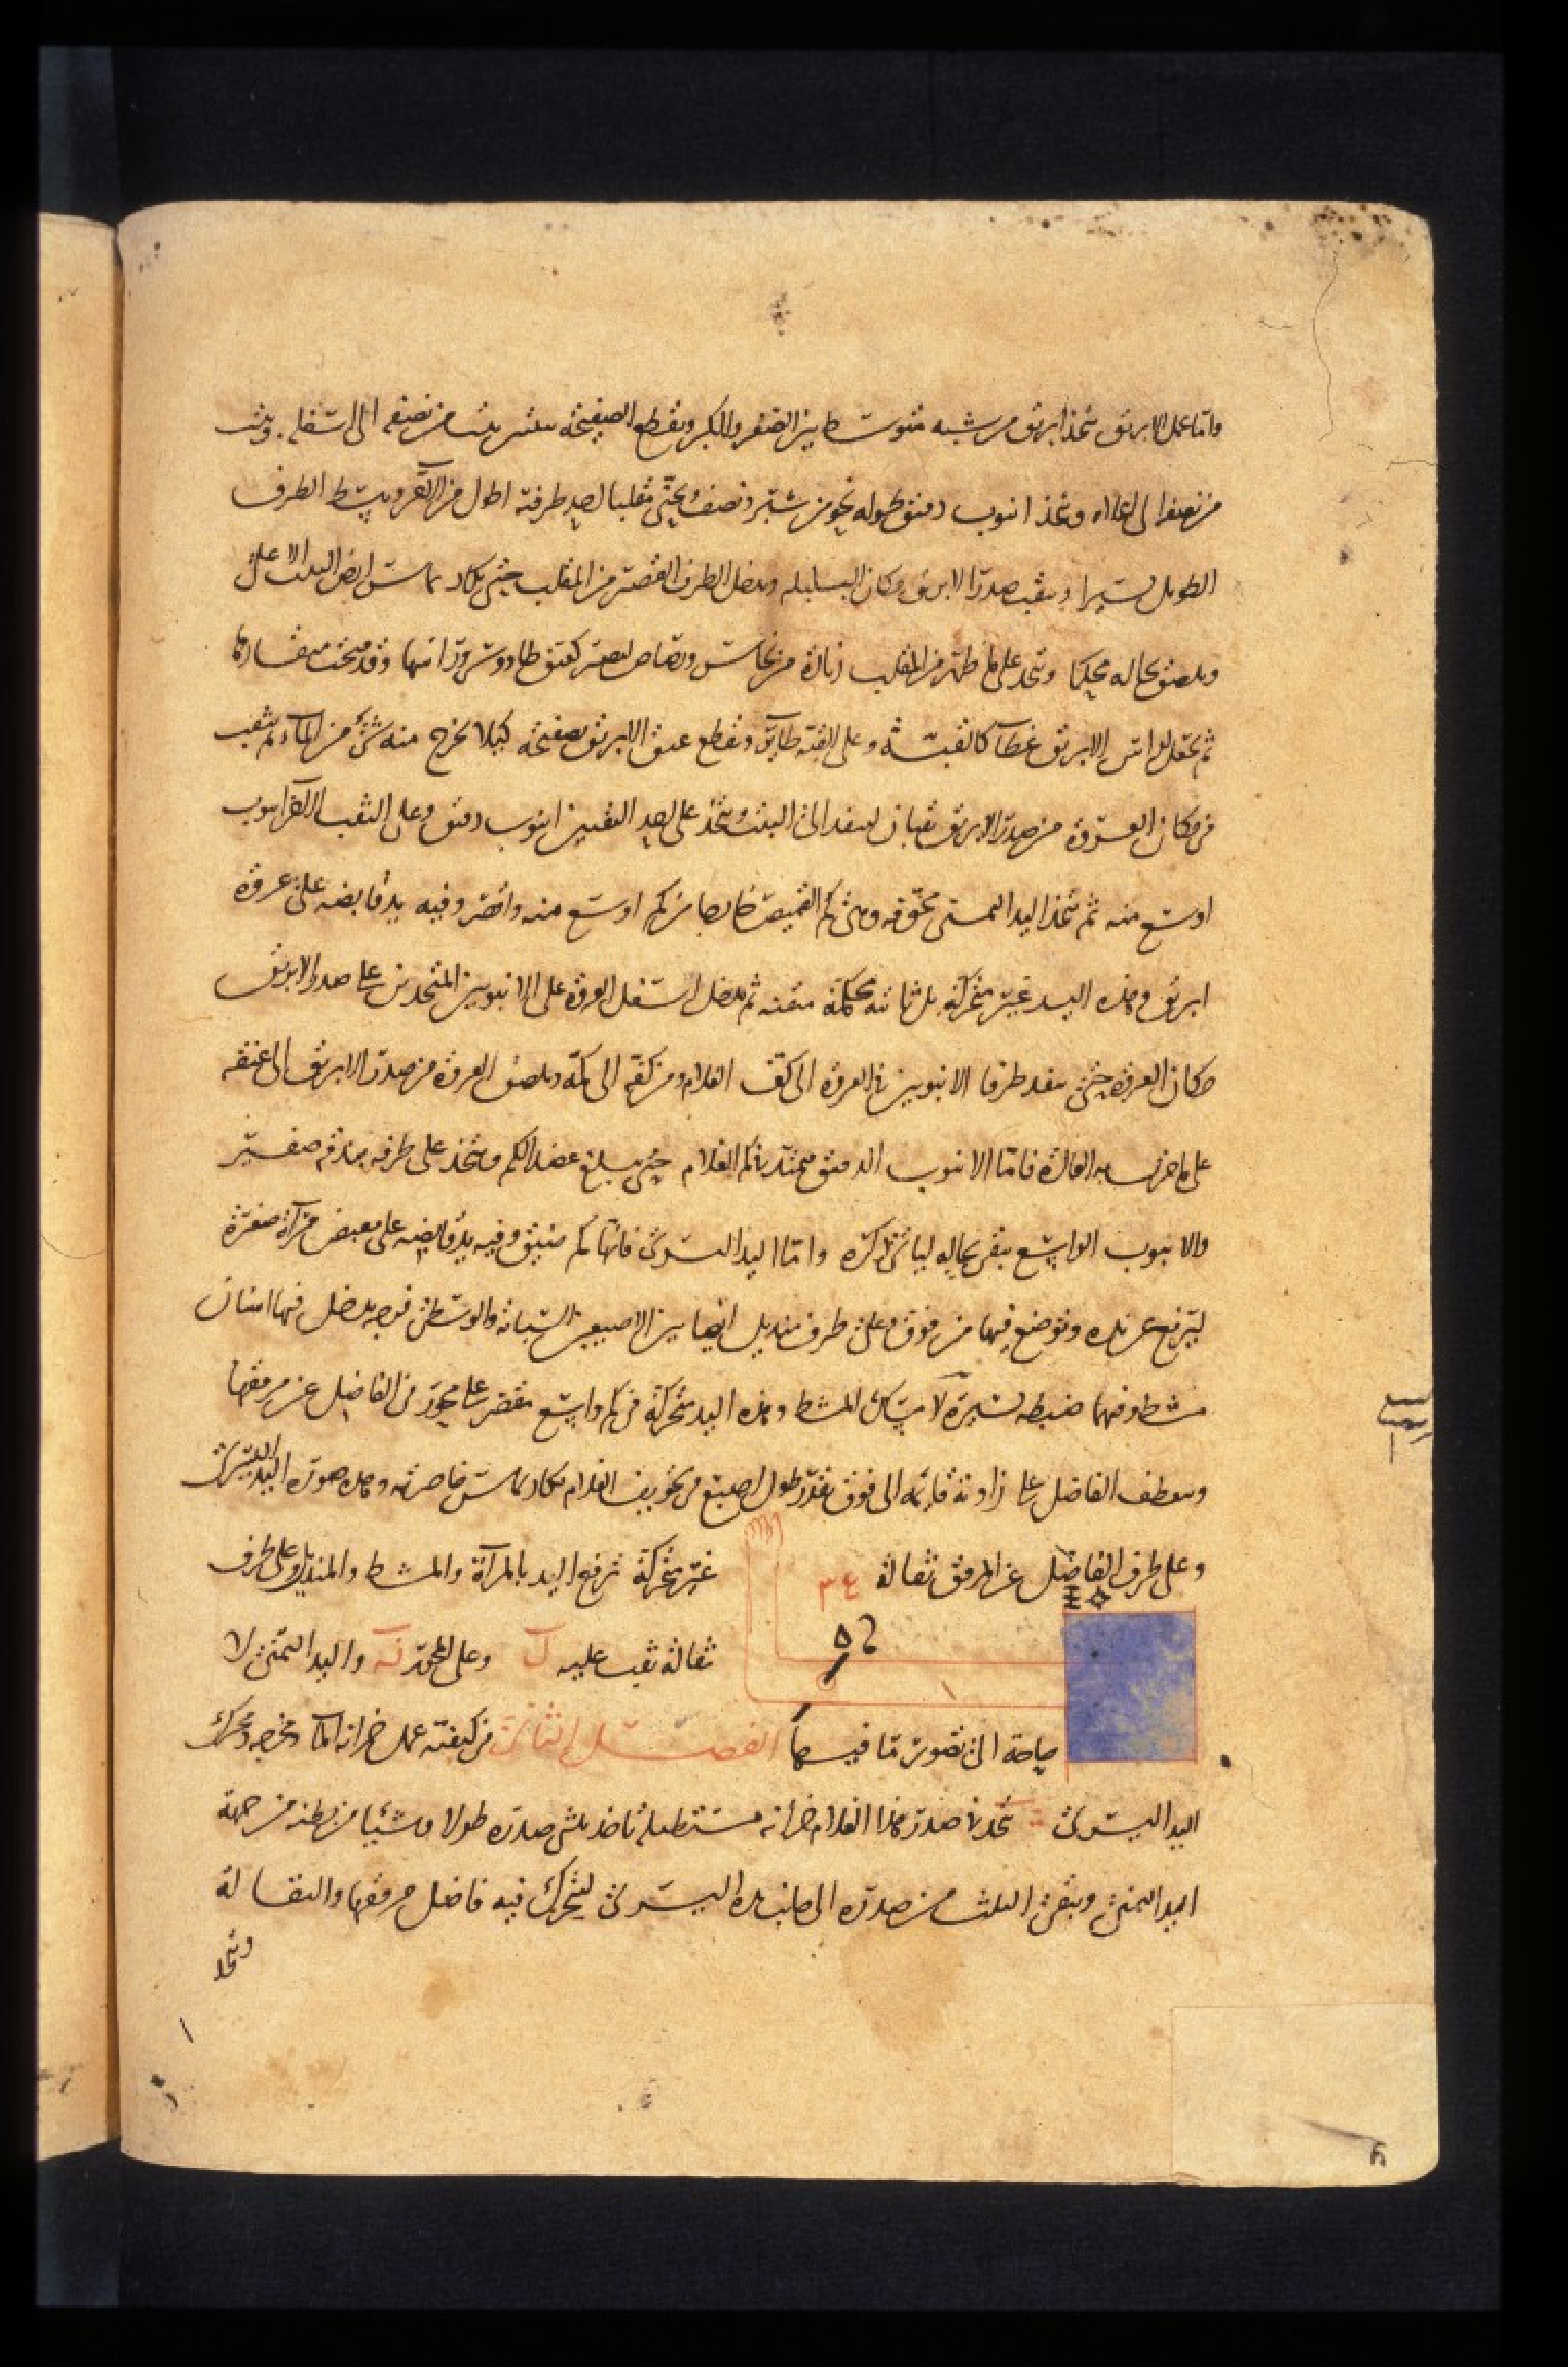 واما عمل الابريق يتخذ ابريق من شبه متوسط بين الصغر والكبر ويقطع الصفيحة بيتين بيت من نصفه الى اسفله وبيت
من نصفه الى اعلاه ويتخذ انبوب دقيق طوله نحو من شبر ونصف يحنى مقلبا احد طرفيه اطول من الآخر ويبسط الطرف
الطويل يسيرا ويثقب صدر الابريق مكان البلبلة ويدخل الطرف القصير من المقلب حتى يكاد يماس ارض البيت الاعلى
ويلصق بحاله محكما ويتخذ على ما ظهر من المقلب زيادة من نحاس ورصاص ليصير كعنق طاووس وراسها وقد فتحت منقارها
ثم يتخذ لراس الابريق غطاء كالقبة وعلى القبة طاير ويقطع عنق الابريق بصفيحة كيلا يخرج منه شئ من الماء ثم يثقب
في مكان العروة من صدر الابريق ثقبان لينفذ الى البيت ويتخذ على احد الثقبين انبوب دقيق وعلى الثقب الآخر انبوب
اوسع منه ثم يتخذ اليد اليمنى مجوفة وهي كم القميص خارجا من كم اوسع منه واقصر وفيه يد قابضة على عروة
ابريق وهذه اليد غير متحركة بل ثابتة محكمة متقنة ثم يدخل اسفل العروة على الانبوبين المتخذين على صدر الابريق
مكان العروة حتى ينفد طرفا الانبوبين في العروة الى كف الغلام ومن كفه الى كمه ويلصق العروة من صدر الابريق الى عنقه
على ما جرت به العادة فاما الانبوب الدقيق يمتد في كم الغلام حتى يبلغ عضد الكم ويتخذ على طرفه بندقة صفير
والانبوب الواسع يبقى بحاله لياتي ذكره واما اليد اليسرى فانها كم ضيق وفيه يد قابضة على مقبض مرآة صغيرة
ليرفع عن يده وتوضع فيها من فوق وعلى طرف منديل ايضا بين الاصبعين السبابة والوسطى فرجة يدخل فيها اسنان
مشط وفيهما ضبطة يسيرة لامساك المشط وهذه اليد متحركة في كم واسع مقصر على محور في الفاضل عن مرفقها
ويعطف الفاضل على زاوية قائمة الى فوق بقدر طول اصبع في تجويف الغلام يكاد يماس خاصرته وهذه صورة اليد اليسرى
وعلى طرف الفاضل عن المرفق ثقالة غير متحركة ترفع اليد بالمرآة والمشط والمنديل وعلى طرف
ثقالة ثقب عليه ل وعلى المحور نه واليد اليمنى لا
حاجة الى تصويرها فيهما الفصل الثاني في كيفية عمل خزانة الماء ومخرجه ومحرك
اليد اليسرى يتخذ في صدر هذا الغلام خزانة مستطيلة تاخذ ثلثي صدره طولا وشيئا من بطنه من جهة
اليد اليمنى ويبقى الثلث من صدره الى جانب يده اليسرى ليتحرك فيه فاضل مرفقها والثقالة
ويتخذ